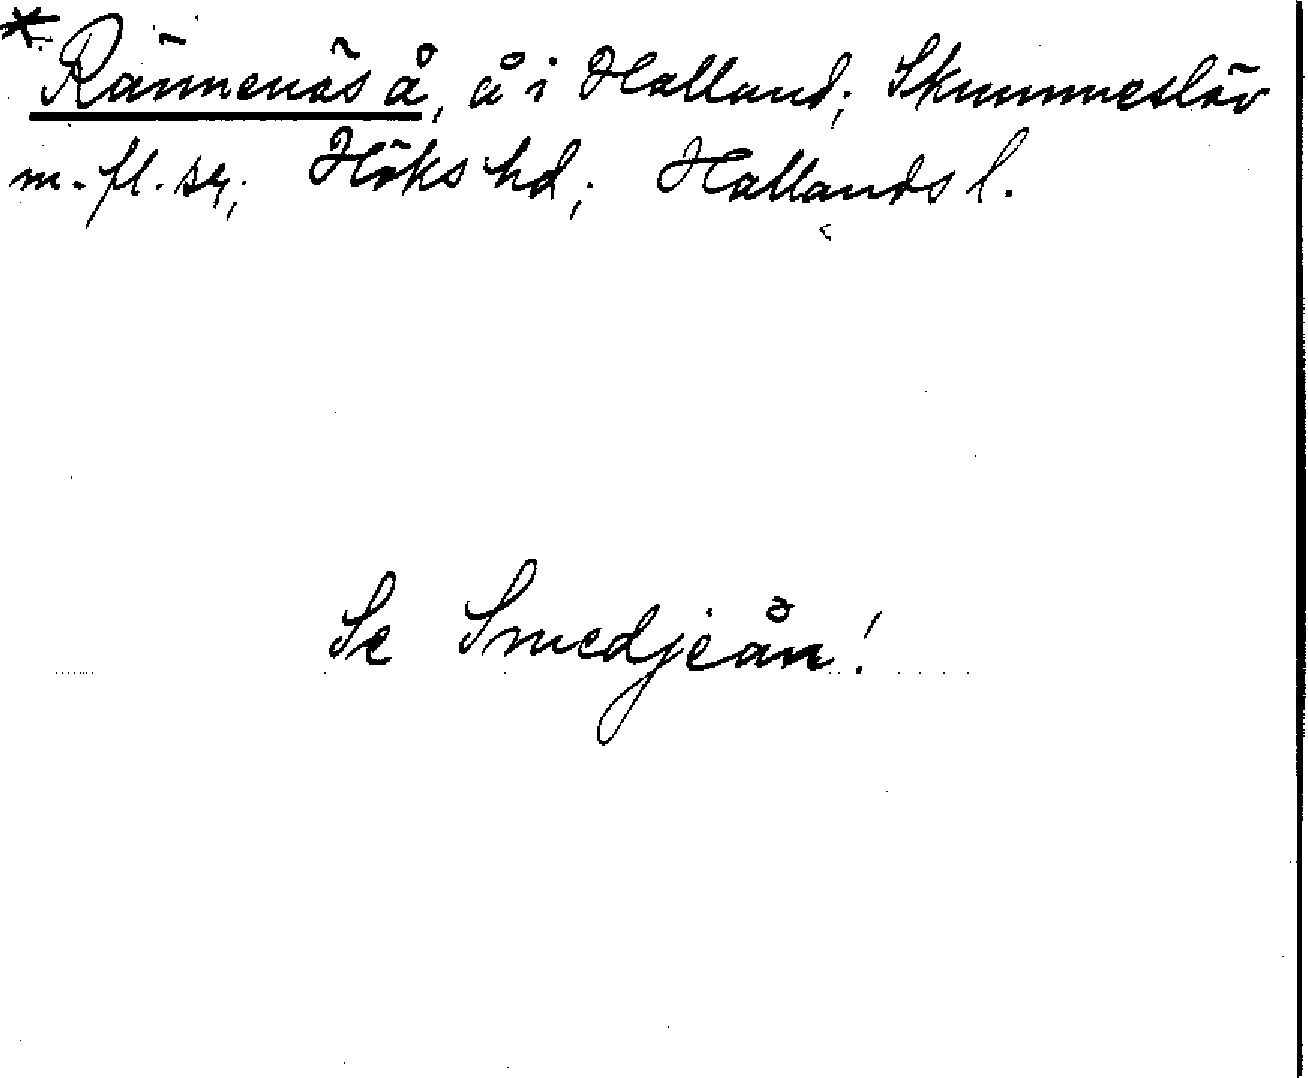 * Rännenäs å, å i Halland; Skummeslöv
m. fl. sn; Höks hd; Hallands l.
Se Smedjeån!